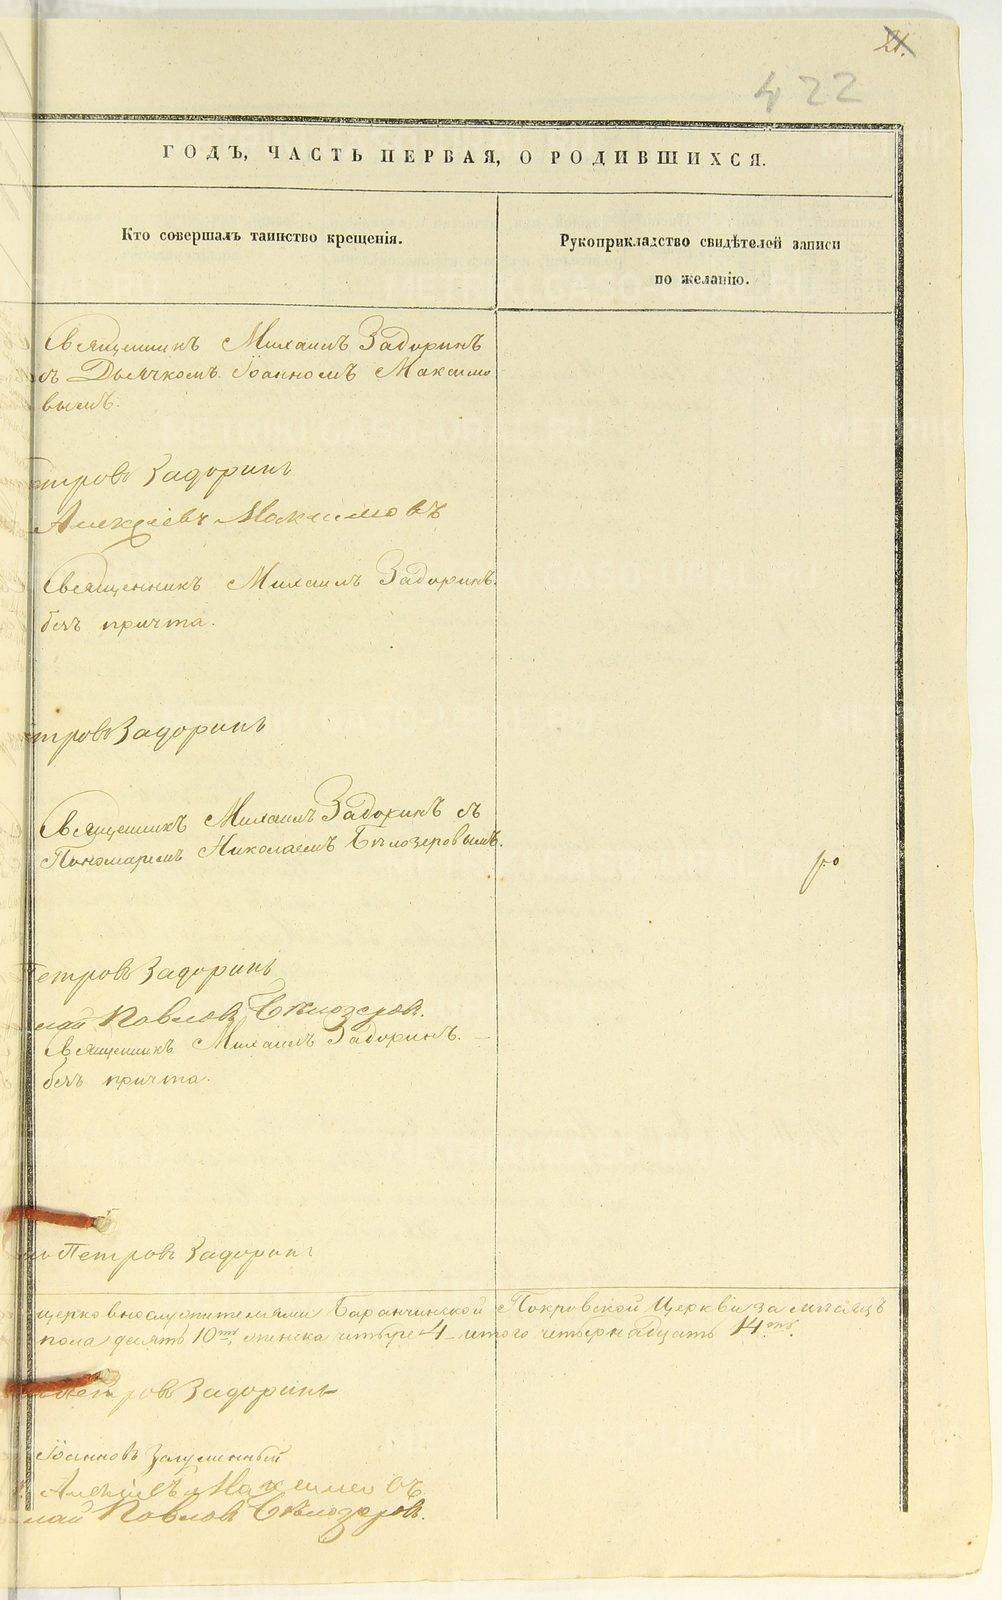 21.
422
ГОДЪ, ЧАСТЬ ПЕРВАЯ, О РОДИВШИХСЯ.
Кто совершалъ таинство крещенія.
Рукоприкладство свидѣтелей записи
по желанію.
Священникъ Михаилъ Задоринъ
съ Дьячкомъ Іоанномъ Максимо
вымъ.
етровъ Задоринъ
Алексіевъ Максимовъ
Священникъ Михаилъ Задоринъ.
безъ причта.
тровъ Задоринъ
Священникъ Михаилъ Задоринъ съ
Пономаремъ Николаемъ Бѣлозеровымъ.
Петровъ Задоринъ
лай Павловъ Бѣлозеровъ.
Священникъ Михаилъ Задоринъ.
безъ причта.
Петровъ Задоринъ
церковнослужителями Баранчинской Покровской Церкви за мѣсяцъ
пола десять 10ть, женска четыре 4 итого четырнадцать 14ть.
Петровъ Задоринъ
Іоанновъ
Алексіевъ Максимовъ
лай Павловъ Бѣлозеровъ.
METRIKI.GASO-URAL.RU